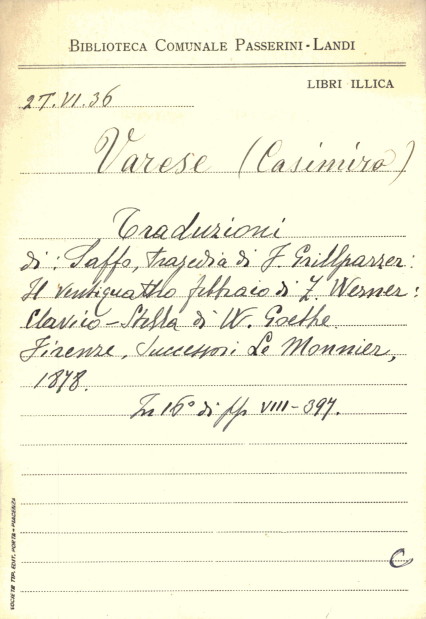 BIBLIOTECA COMUNALE PASSERINI-LANDI
LIBRI ILLICA
27.VI.36
Varese (Casimiro)
Traduzioni
di: Saffo, tragedia di F Grillparzer:
Il ventiquattro febbraio di Z. Werner:
Clavico - Stella di W. Goethe.
Firenze, Successori Le Monnier,
1878.
In 16° di pp VIII-397.
C
SOCIETÀ TIP. EDIT. PORTA - PIACENZA